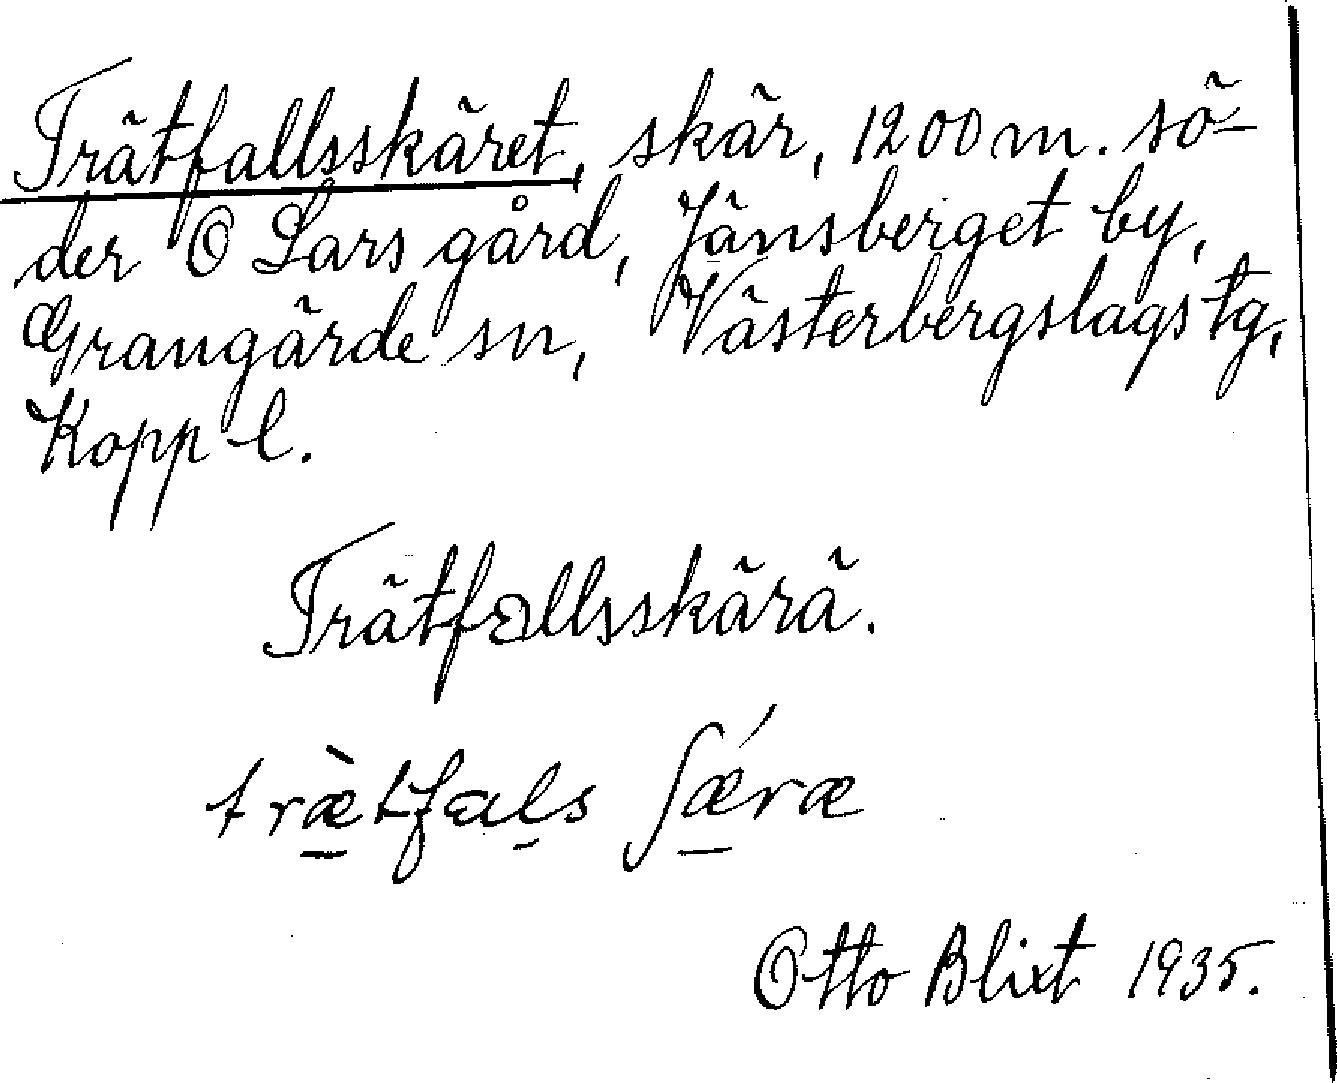 Trätfallsskäret, skär, 1200 m. sö-
der O Lars gård, Jänsberget by,
Grangärde sn, Västerbergslags tg,
Kopp l.
Trätfallsskärä.
træ̀tfals ʃǽræ
Otto Blixt 1935.